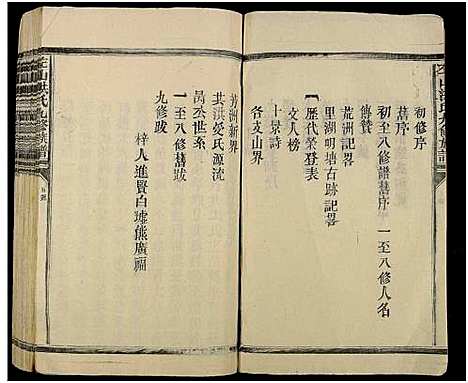 初修序
舊序
初至八修譜舊序 一至八修人名
傳贊
荒洲記畧
里湖明塘古跡記畧
歷代榮登表
文人榜
十景詩
各支山界
芳洲新界
共洪晏氏源流
昺公世系
一至八修舊跋
九修跋
梓人進賢白墟熊廣福